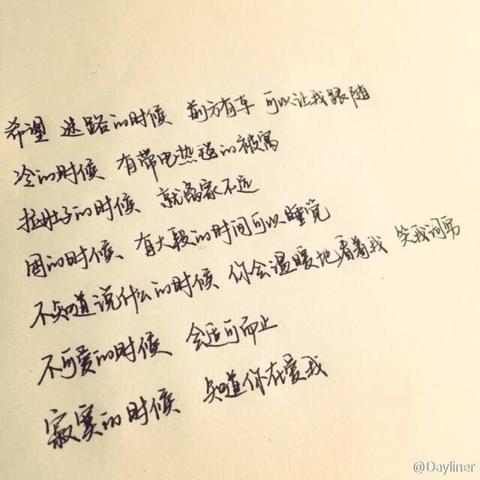 希望 迷路的时候 前方有车 可以让我跟随
冷的时候 有带电热毯的被窝
拉肚子的时候 就离家不远
困的时候、有大段的时间可以睡觉
不知道说什么的时候 你会温暖地看着我 笑我词穷
不可爱的时候 会适可而止
寂寞的时候 知道你在爱我
@Dayliner